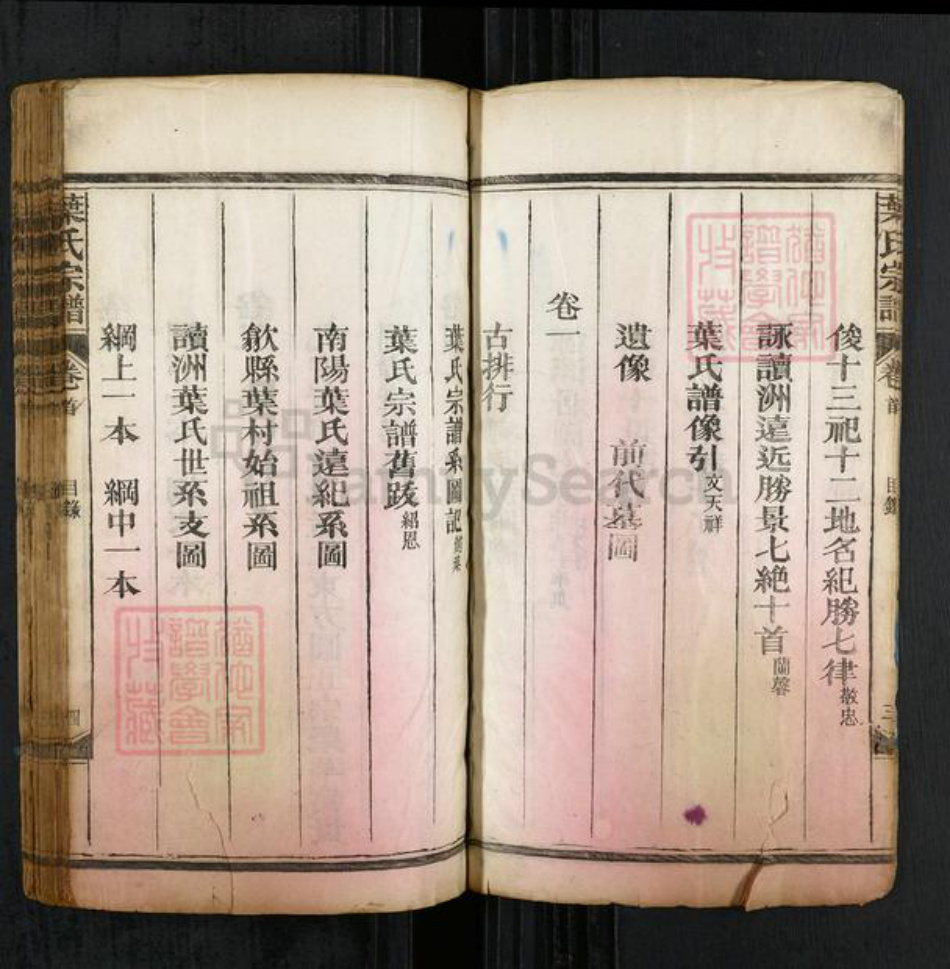 葉氏宗譜 卷首 目錄 三
俊十三祀十二地名紀勝七律 敬忠
詠讀洲遠近勝景七絶十首 蘭馨
葉氏譜像引 文天祥
遺像 前代墓圖
卷一
古排行
葉氏宗譜系圖記
葉氏宗譜舊跋 紹恩
南陽葉氏遠紀系圖
歙縣葉村始祖系圖
讀洲葉氏世系支圖
綱上一本 綱中一本
葉氏宗譜 卷首 目錄 四
FamilySearch